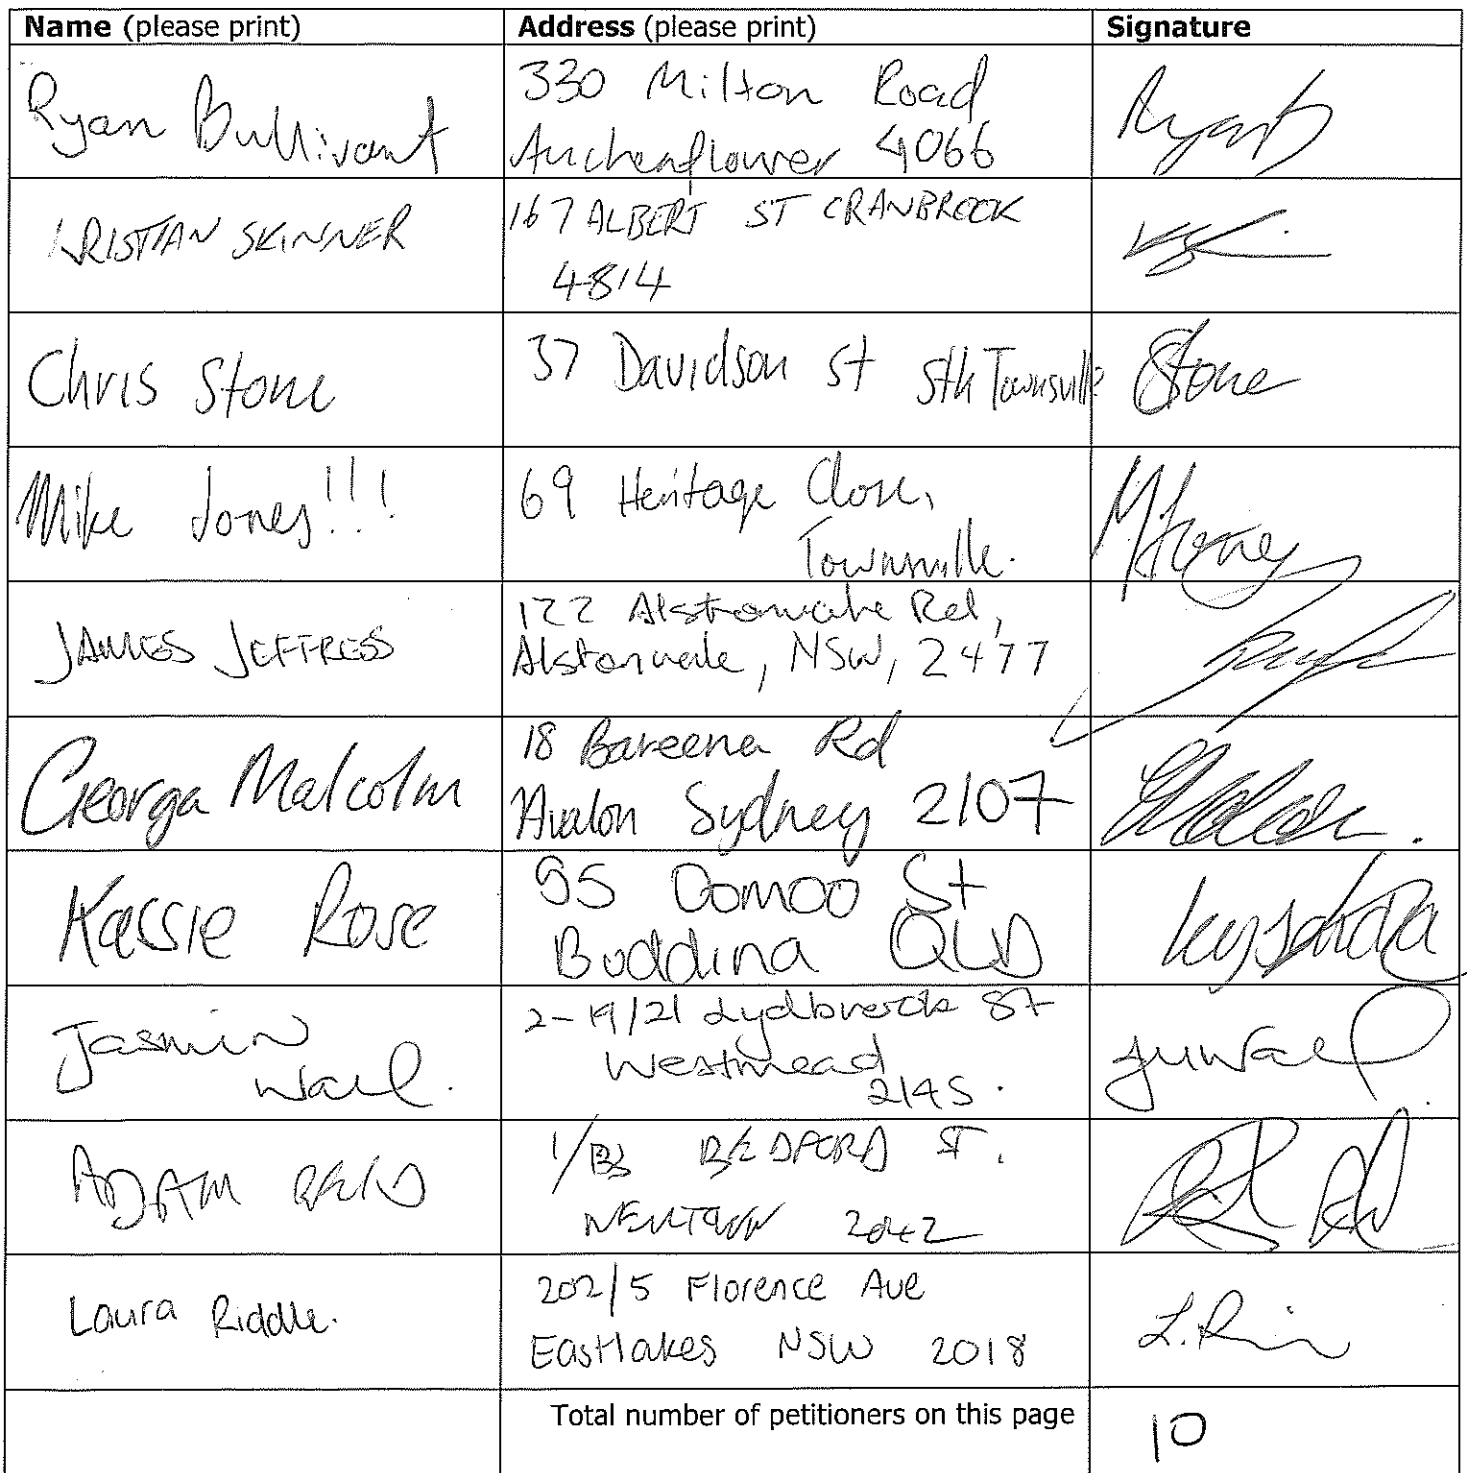 Name (please print) Address (please print) Signature
Ryan Bullivant 330 Milton Road
Auchenflower 4066
KRISTIAN SKINNER 167 ALBERT ST CRANBROOK
4814
Chris Stone 37 Davidson St Sth Townsville Stone
Mike Jones!!! 69 Heritage Close,
Townsville. MJones
JAMES JEFFRESS 122 Alstonvale Rd,
Alstonvale, NSW, 2477
Georga Malcolm 18 Bareena Rd
Avalon Sydney 2107
Kassie Rose 95 Oomoo St
Buddina QLD
Jasmin 2-19/21 Lydbrook St
Wall. Westmead
2145.
ADAM REID BEDFORD ST.
NEWTOWN 2042
Laura Riddle. 202/5 Florence Ave
Eastlakes NSW 2018
Total number of petitioners on this page 10